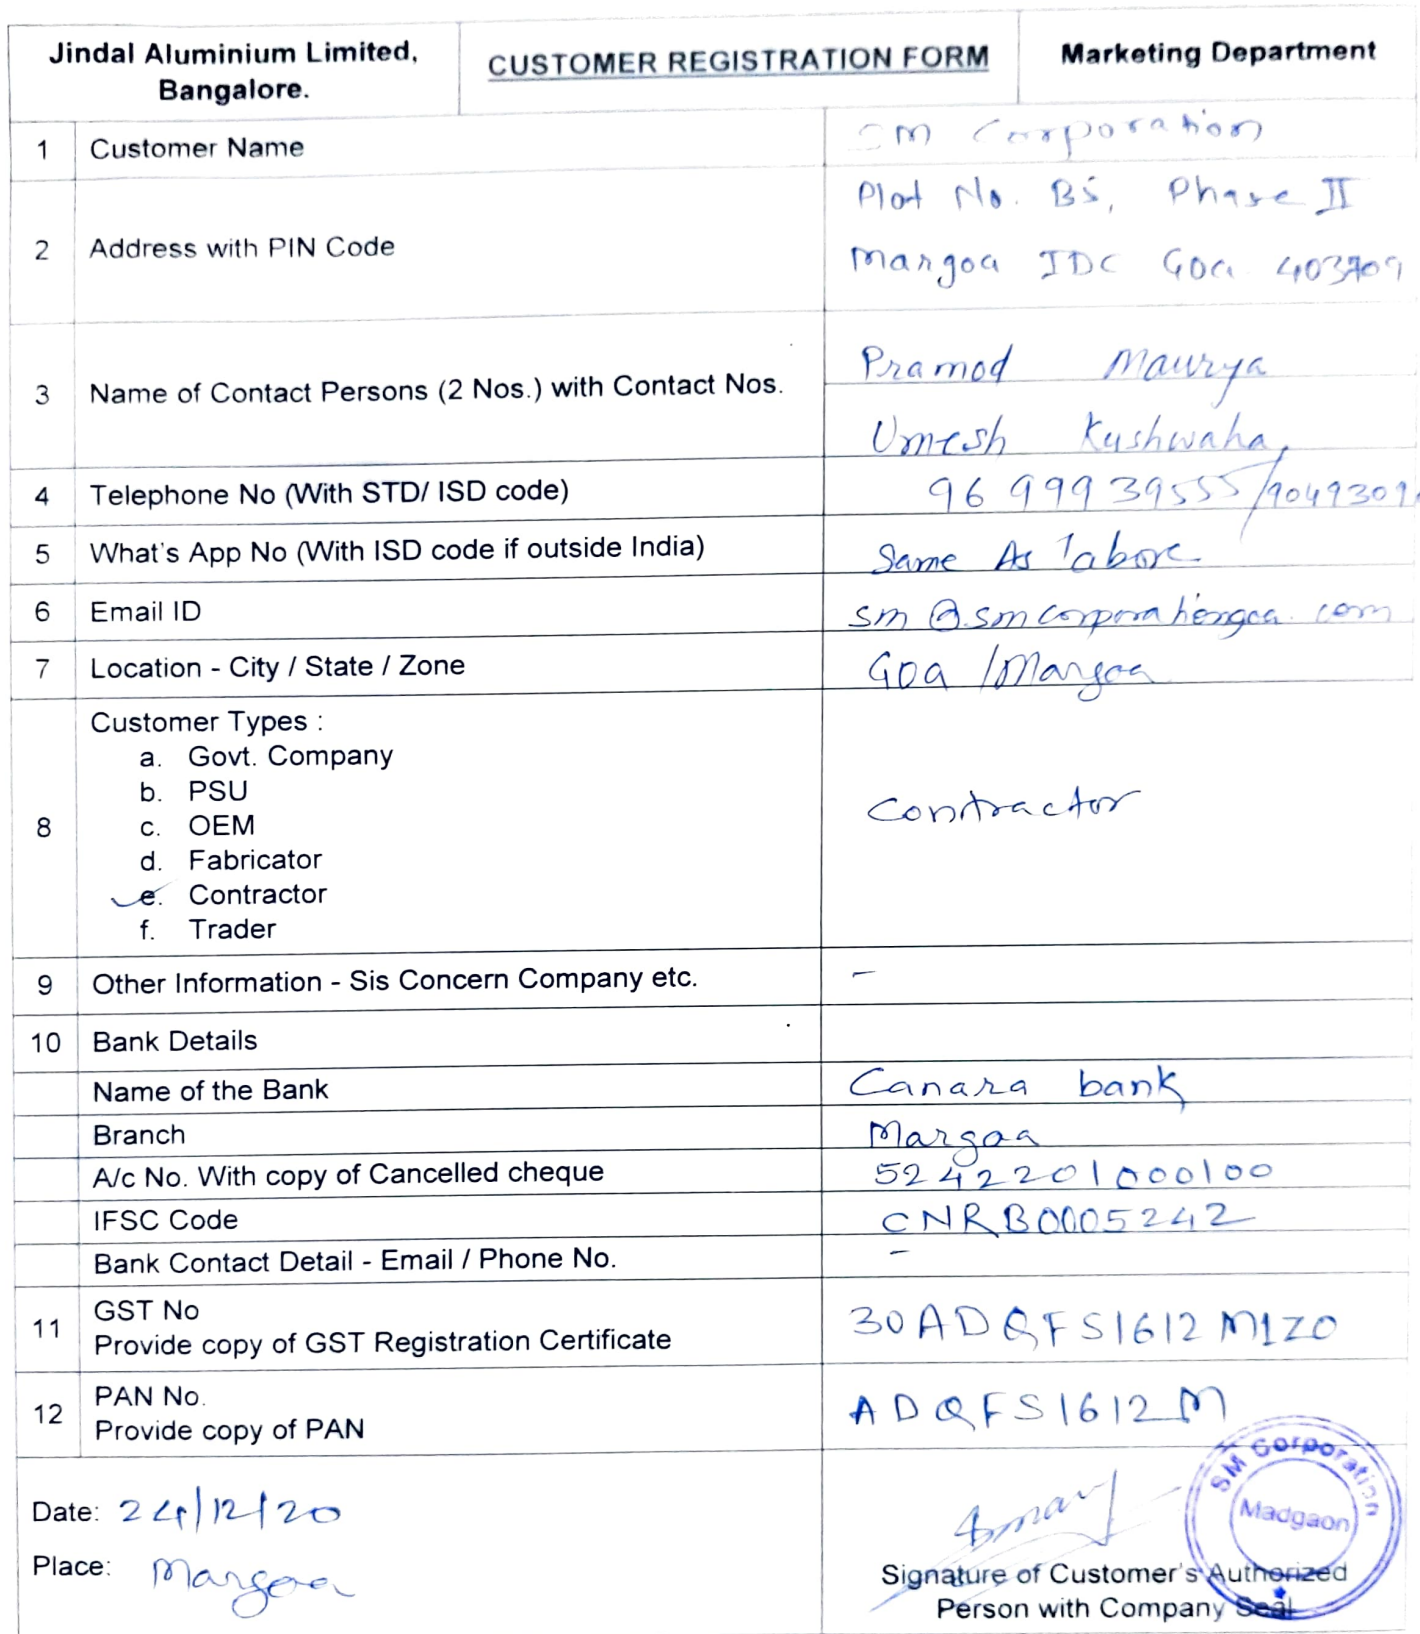 Jindal Aluminium Limited,
Bangalore.
CUSTOMER REGISTRATION FORM
Marketing Department
1 Customer Name SM Corporation
2 Address with PIN Code
Plot No. B5, Phase II
Margoa IDC Goa 403709
3 Name of Contact Persons (2 Nos.) with Contact Nos.
Pramod Maurya
Umesh Kushwaha
4 Telephone No (With STD/ ISD code) 9699939555/
5 What's App No (With ISD code if outside India) Same As above
6 Email ID sm@smcorporationgoa.com
7 Location - City / State / Zone Goa / Margoa
8 Customer Types :
a. Govt. Company
b. PSU
c. OEM
d. Fabricator
e. Contractor
f. Trader
Contractor
9 Other Information - Sis Concern Company etc. -
10 Bank Details
Name of the Bank Canara bank
Branch Margoa
A/c No. With copy of Cancelled cheque 52422201000100
IFSC Code CNRB0005242
Bank Contact Detail - Email / Phone No. -
11 GST No
Provide copy of GST Registration Certificate
30ADQFS1612M1Z0
12 PAN No.
Provide copy of PAN
ADQFS1612M
Date: 24/12/20
Place: Margoa
SM Corporation
Madgaon
Signature of Customer's Authorized
Person with Company Seal